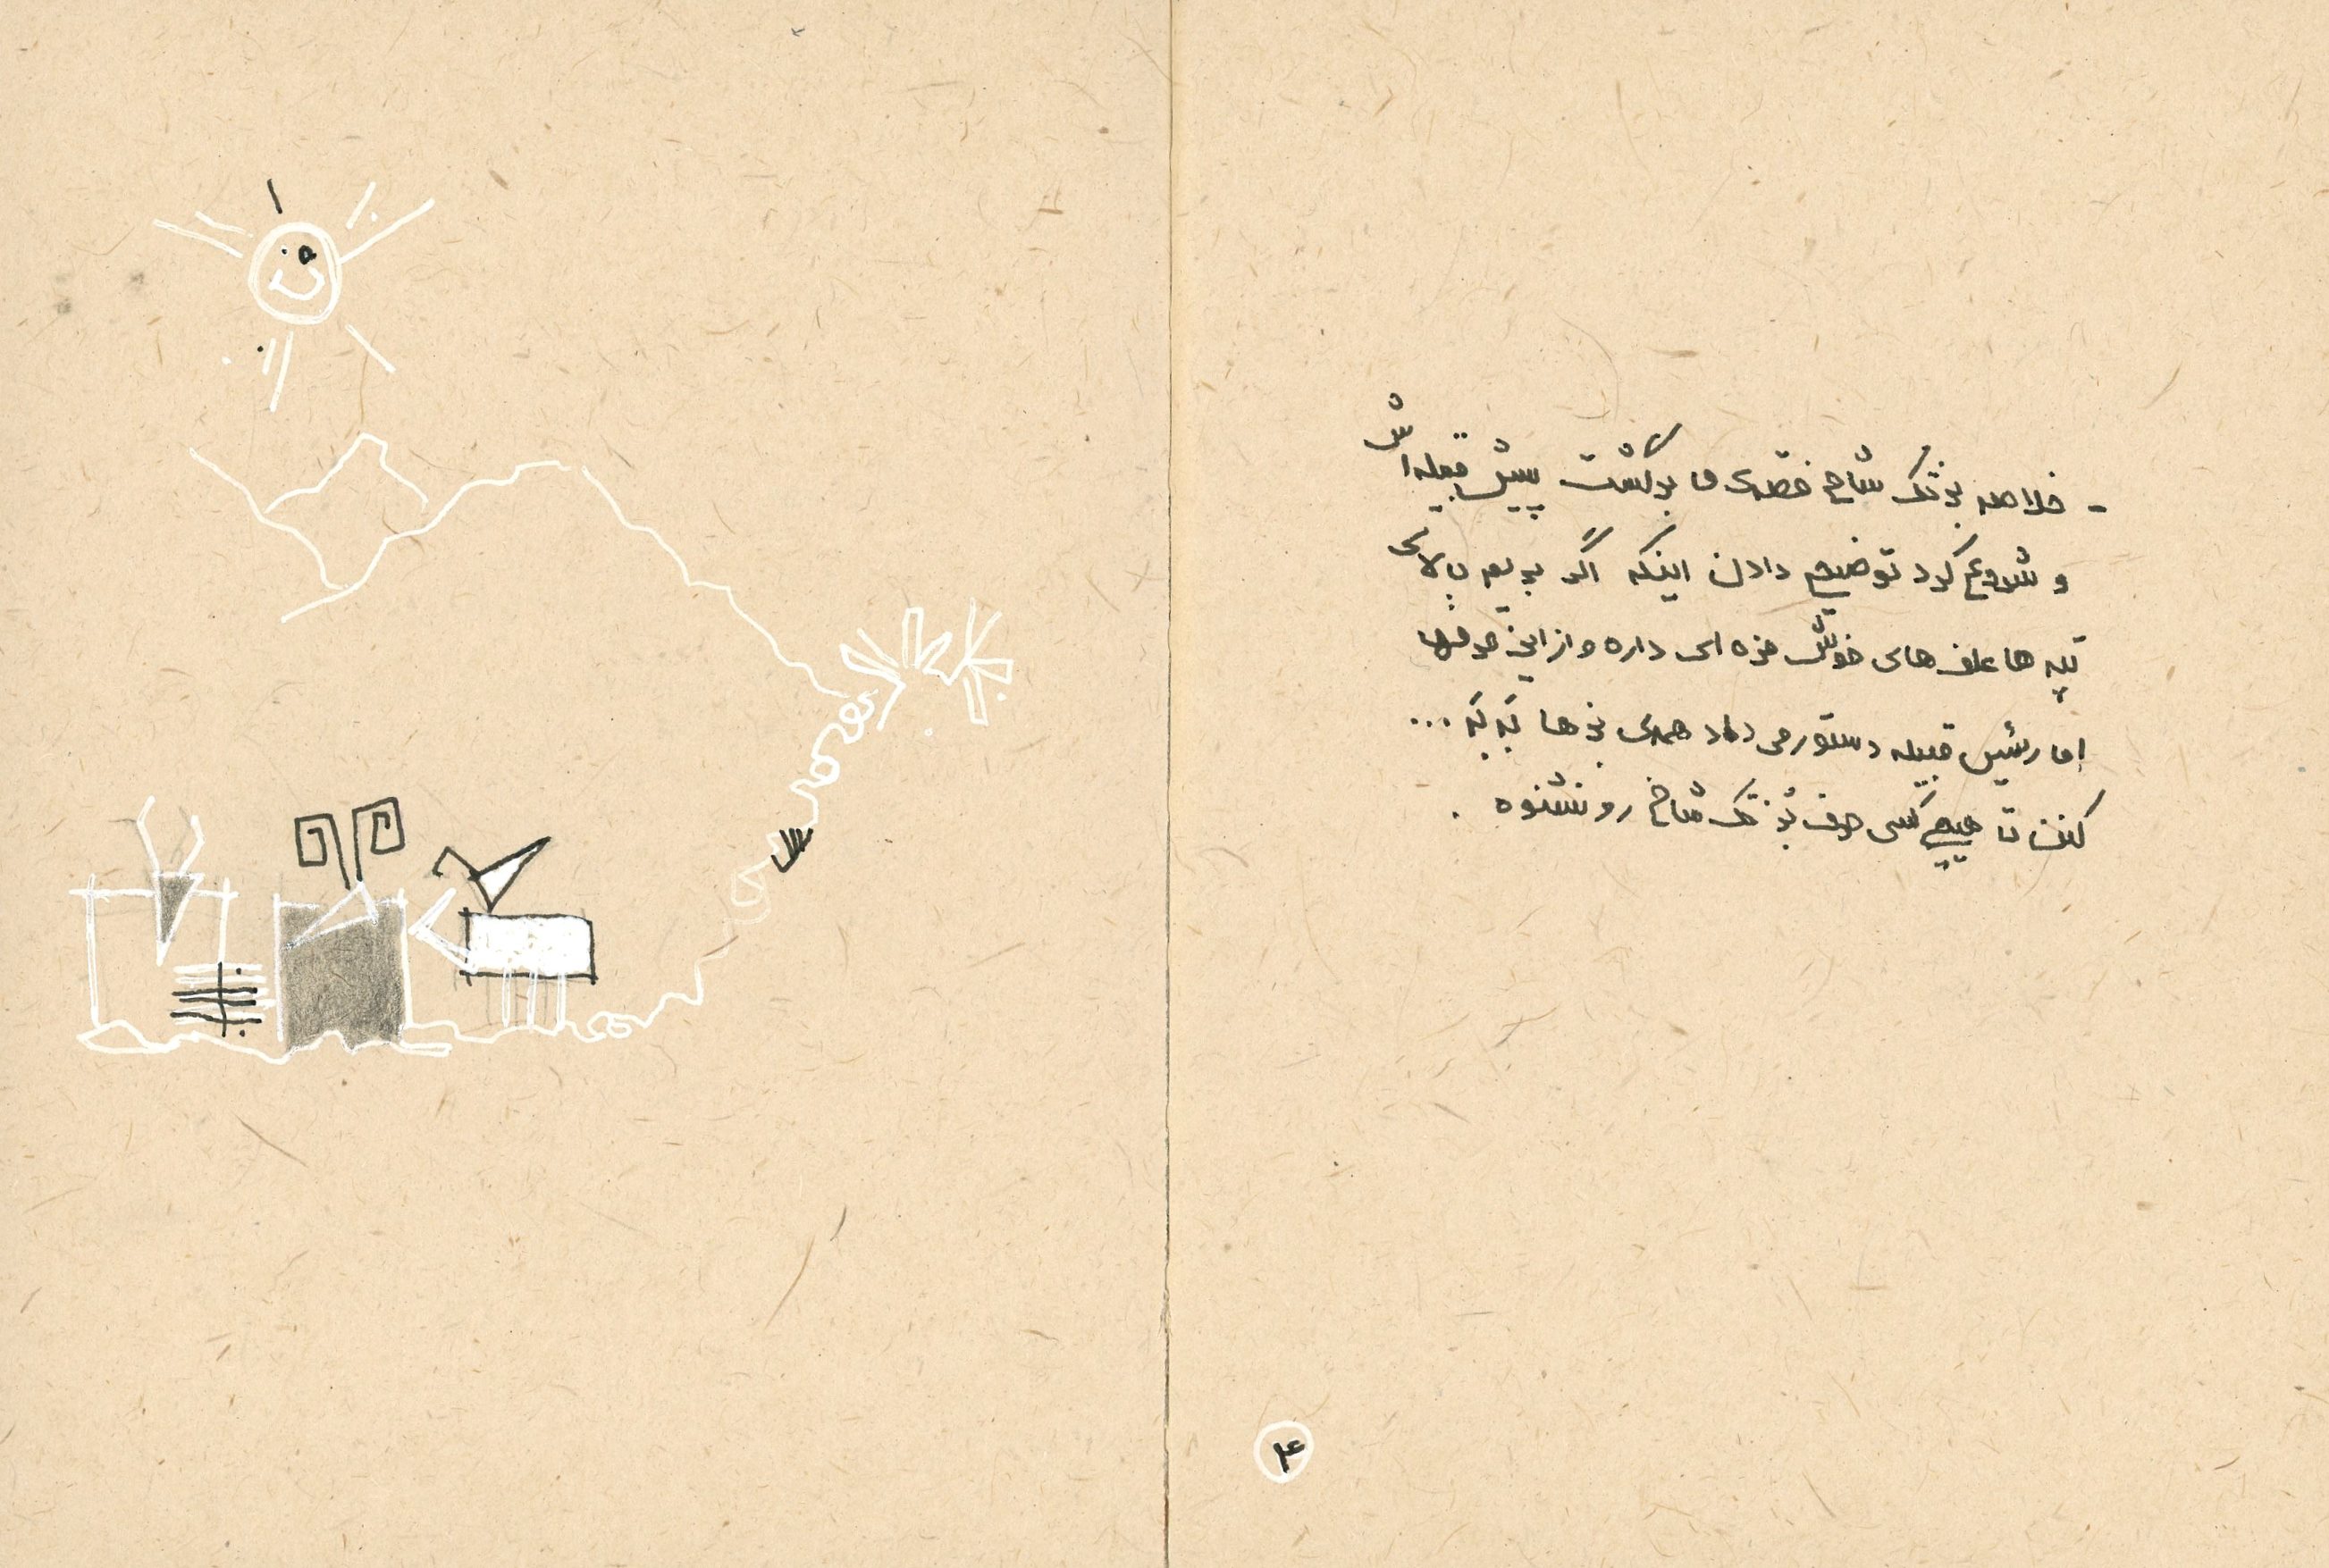 - خلاصه بز تک شاخ قصه‌ی ما برگشت پیش قبیله‌اش
و شروع کرد توضیح دادن اینکه اگر بریم بالای
تپه ها علف های خوش مزه ای داره و از این حرفها
اما رئیس قبیله دستور می داد همه‌ی بزها بَه بَه ...
کنن تا هیچ کسی حرف بُز تک شاخ رو نشنوه .
۴